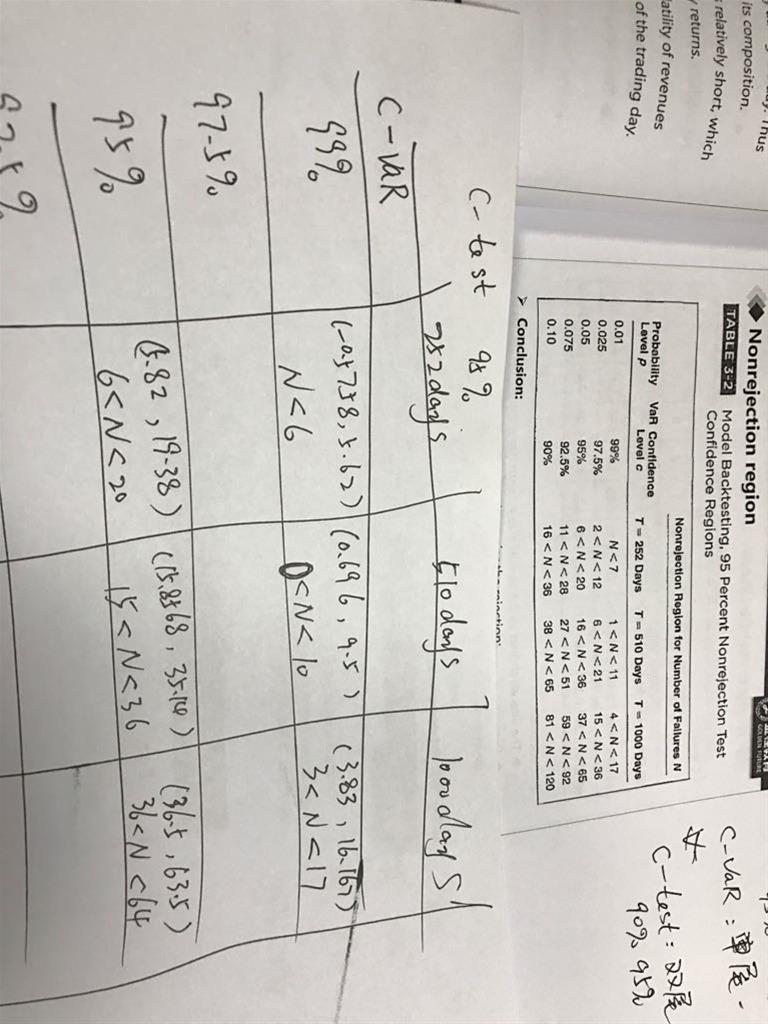 Thus
its composition.
relatively short, which
returns.
of revenues
of the trading day.
Nonrejection region
TABLE 3-2 Model Backtesting, 95 Percent Nonrejection Test
Confidence Regions
Nonrejection Region for Number of Failures N
Probability Level p VaR Confidence Level c T = 252 Days T = 510 Days T = 1000 Days
0.01 99% N < 7 1 < N < 11 4 < N < 17
0.025 97.5% 2 < N < 12 6 < N < 21 15 < N < 36
0.05 95% 6 < N < 20 16 < N < 36 37 < N < 65
0.075 92.5% 11 < N < 28 27 < N < 51 59 < N < 92
0.10 90% 16 < N < 36 38 < N < 65 81 < N < 120
Conclusion:
C-VaR：单尾
C-test：双尾
90% 95%
C-test 95%
252days 510days 1000days
C-VaR
99% (-0.5758, 5.62) (0.696, 9.5) (3.83, 16.167)
N<6 0<N<10 3<N<17
97.5%
95% (5.82, 19.38) (15.8568, 35.14) (36.5, 63.5)
6<N<20 15<N<36 36<N<64